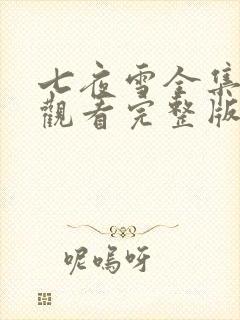 七夜雪全集
觀看完整版
呢嗚呀